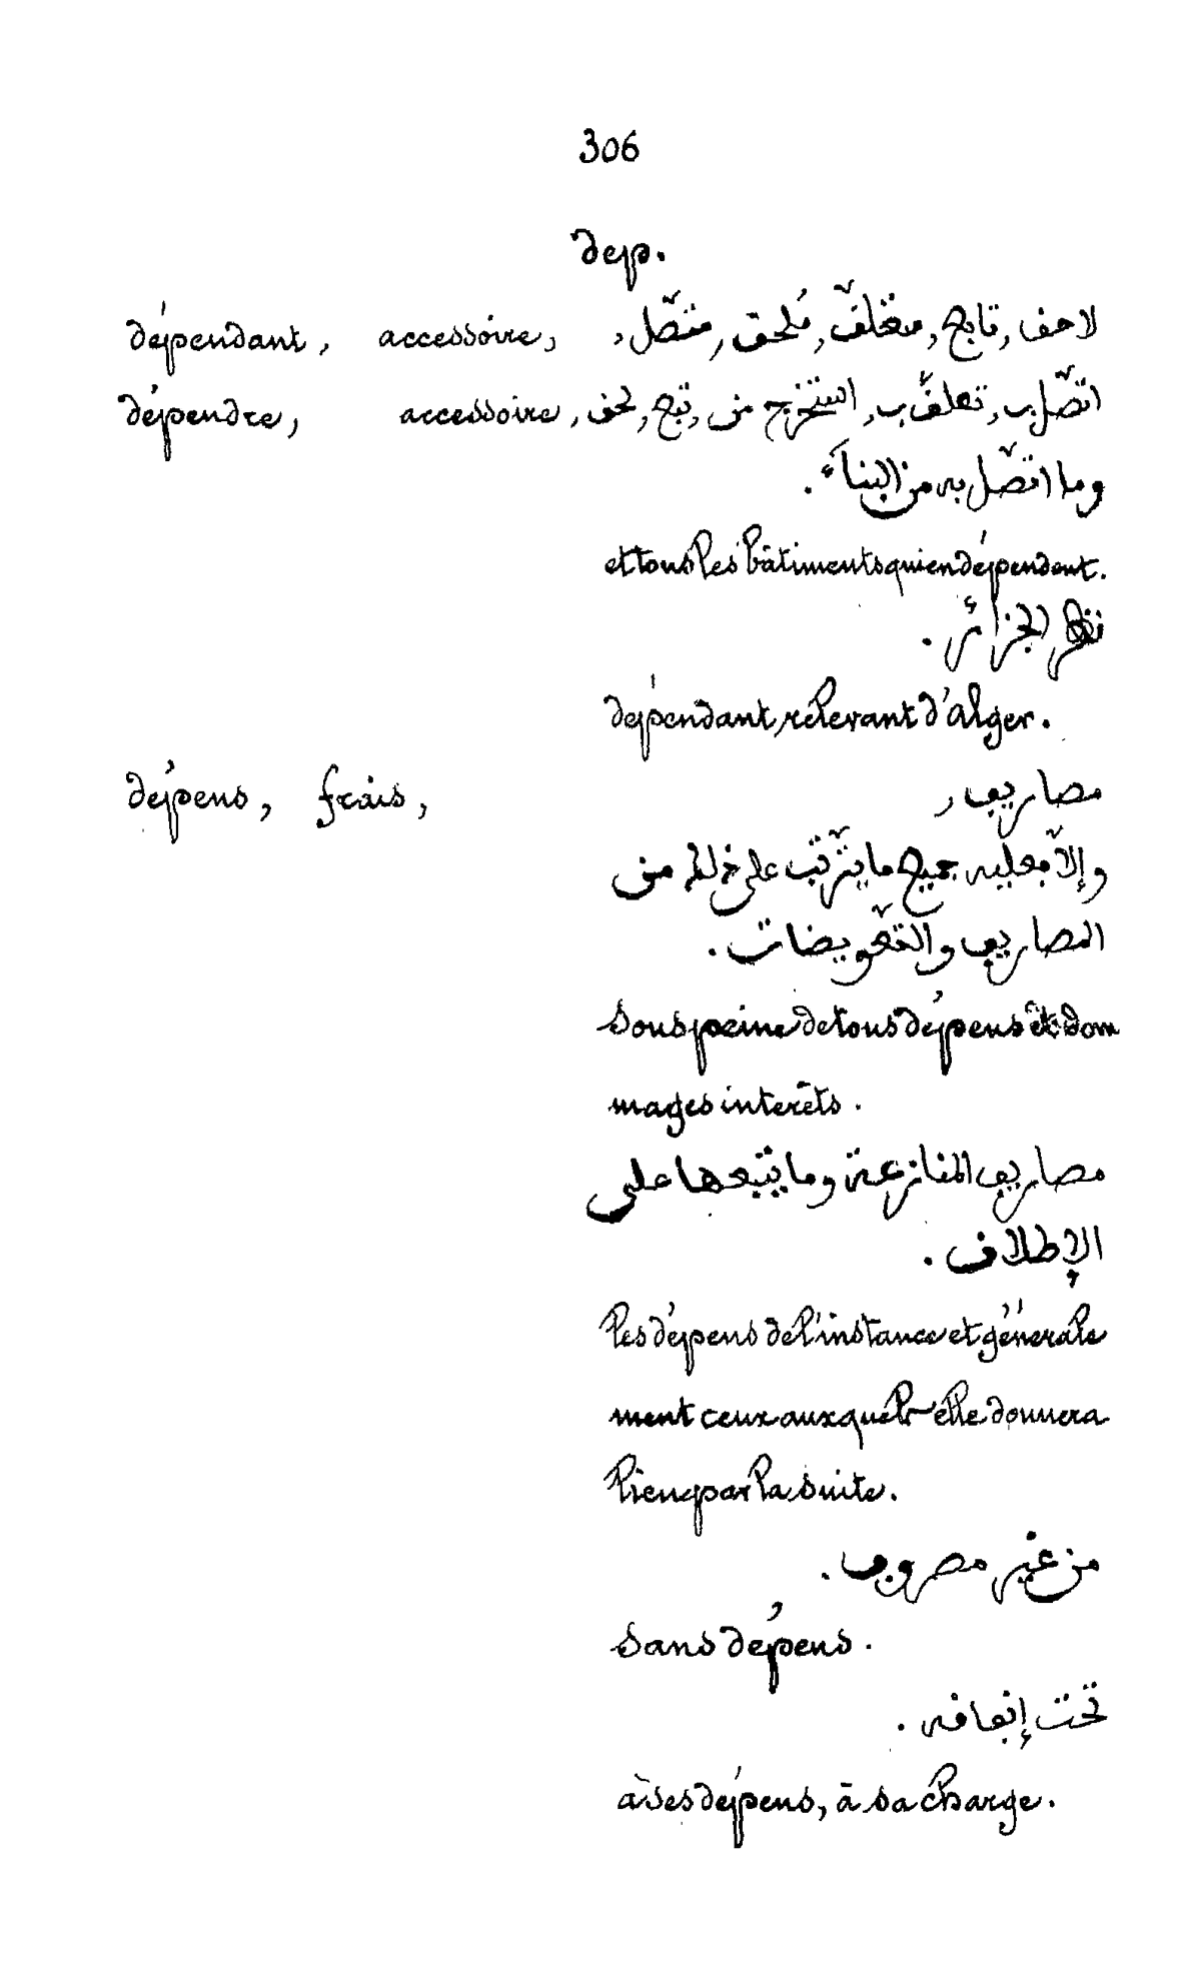 306
dép.
dépendant, accessoire, لاحق, تابع, متعلّق, مُلحق, متّصل,
dépendre, accessoire, اتّصل ب, تعلّق ب, استخرج من, تبع, لحق,
وما اتّصل به من البناء.
et tous les bâtiments qui en dépendent.
نظر الجزائر.
dépendant, relevant d'Alger.
dépens, frais, مصاريف,
وإلّا فعليه جميع ما يترتّب على ذلك من
المصاريف والتّعويضات.
sous peine de tous dépens et dom
mages interêts.
مصاريف المنازعة وما يتبعها على
الإطلاق.
les dépens de l'instance et générale
ment ceux auxquels elle donnera
lieu par la suite.
من غير مصروف.
sans dépens.
تحت إنفاقه.
à ses dépens, à sa charge.